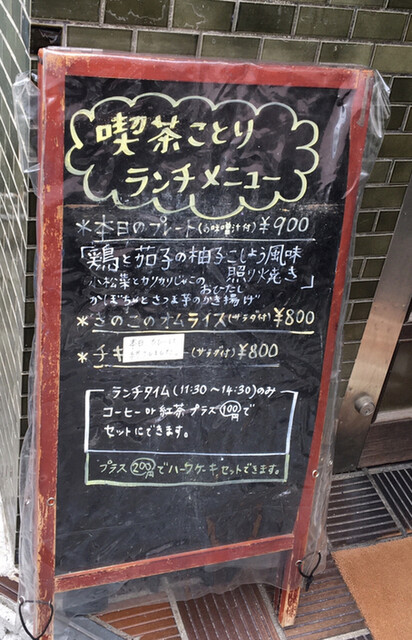 喫茶ことり
ランチメニュー
*本日のプレート(味噌汁付)¥900
「鶏と茄子の柚子こしょう風味
照り焼き」
小松菜とカリカリじゃこの
おひたし
かぼちゃとさつま芋のかき揚げ
*きのこのオムライス(サラダ付)¥800
*チキ
本日
(サラダ付)¥800
ランチタイム(11:30〜14:30)のみ
コーヒーor紅茶プラス100円で
セットにできます。
プラス200円でハーフケーキセットできます。